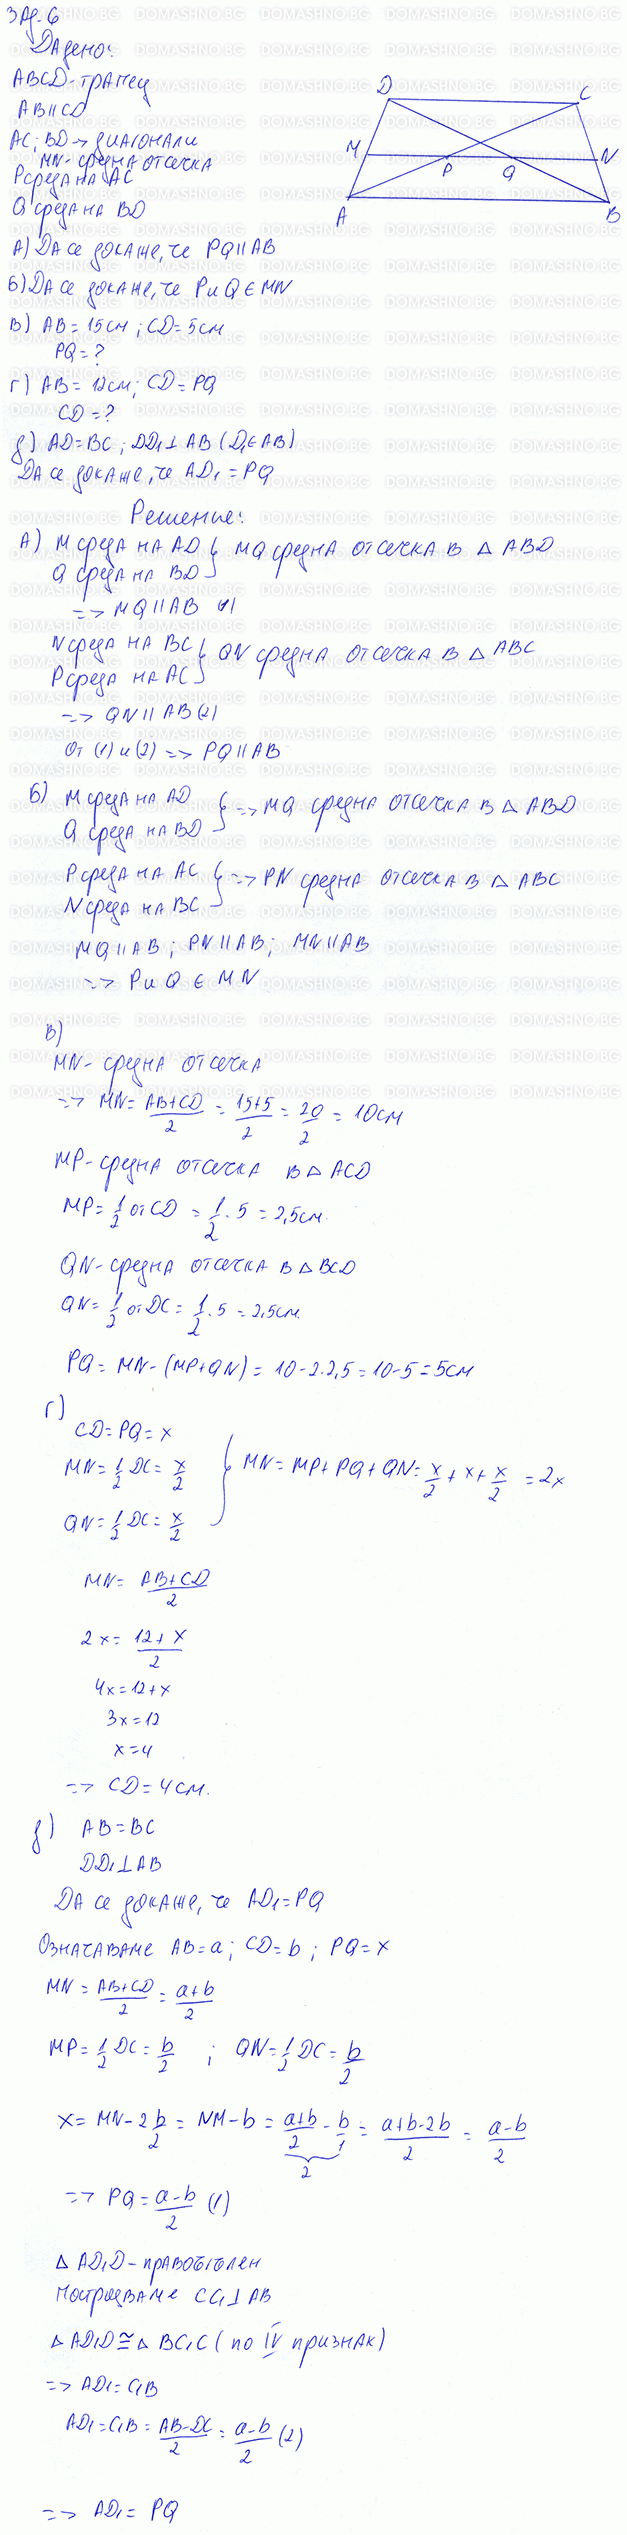 Зад. 6
Дадено:
ABCD - трапец
AB || CD
AC; BD → диагонали
MN - средна отсечка
P среда на AC
Q среда на BD
А) Да се докаже, че PQ || AB
Б) Да се докаже, че P и Q ∈ MN
В) AB = 15см; CD = 5см
PQ = ?
Г) AB = 12см; CD = PQ
CD = ?
Д) AD = BC; DD₁ ⊥ AB (D₁ ∈ AB)
Да се докаже, че AD₁ = PQ
D C
M P Q N
A B
Решение:
А) M среда на AD } MQ средна отсечка в △ ABD
Q среда на BD
=> MQ || AB (1)
N среда на BC } QN средна отсечка в △ ABC
P среда на AC
=> QN || AB (2)
От (1) и (2) => PQ || AB
Б) M среда на AD } => MQ средна отсечка в △ ABD
Q среда на BD
P среда на AC } => PN средна отсечка в △ ABC
N среда на BC
MQ || AB; PN || AB; MN || AB
=> P и Q ∈ MN
В)
MN - средна отсечка
=> MN = AB+CD/2 = 15+5/2 = 20/2 = 10см
MP - средна отсечка в △ ACD
MP = 1/2 от CD = 1/2 . 5 = 2,5см.
QN - средна отсечка в △ BCD
QN = 1/2 от DC = 1/2 . 5 = 2,5см.
PQ = MN - (MP+QN) = 10 - 2.2,5 = 10 - 5 = 5см
Г)
CD = PQ = x
MN = 1/2 DC = x/2 } MN = MP + PQ + QN = x/2 + x + x/2 = 2x
QN = 1/2 DC = x/2
MN = AB+CD/2
2x = 12+x/2
4x = 12+x
3x = 12
x = 4
=> CD = 4см.
Д) AB = BC
DD₁ ⊥ AB
Да се докаже, че AD₁ = PQ
Означаваме AB = a; CD = b; PQ = x
MN = AB+CD/2 = a+b/2
MP = 1/2 DC = b/2 ; QN = 1/2 DC = b/2
x = MN - 2 b/2 = NM - b = a+b/2 - b/1 = a+b-2b/2 = a-b/2
2
=> PQ = a-b/2 (1)
△ AD₁D - правоъгълен
Построяваме CC₁ ⊥ AB
△ AD₁D ≅ △ BC₁C (по IV признак)
=> AD₁ = C₁B
AD₁ = C₁B = AB-DC/2 = a-b/2 (2)
=> AD₁ = PQ
DOMASHNO.BG